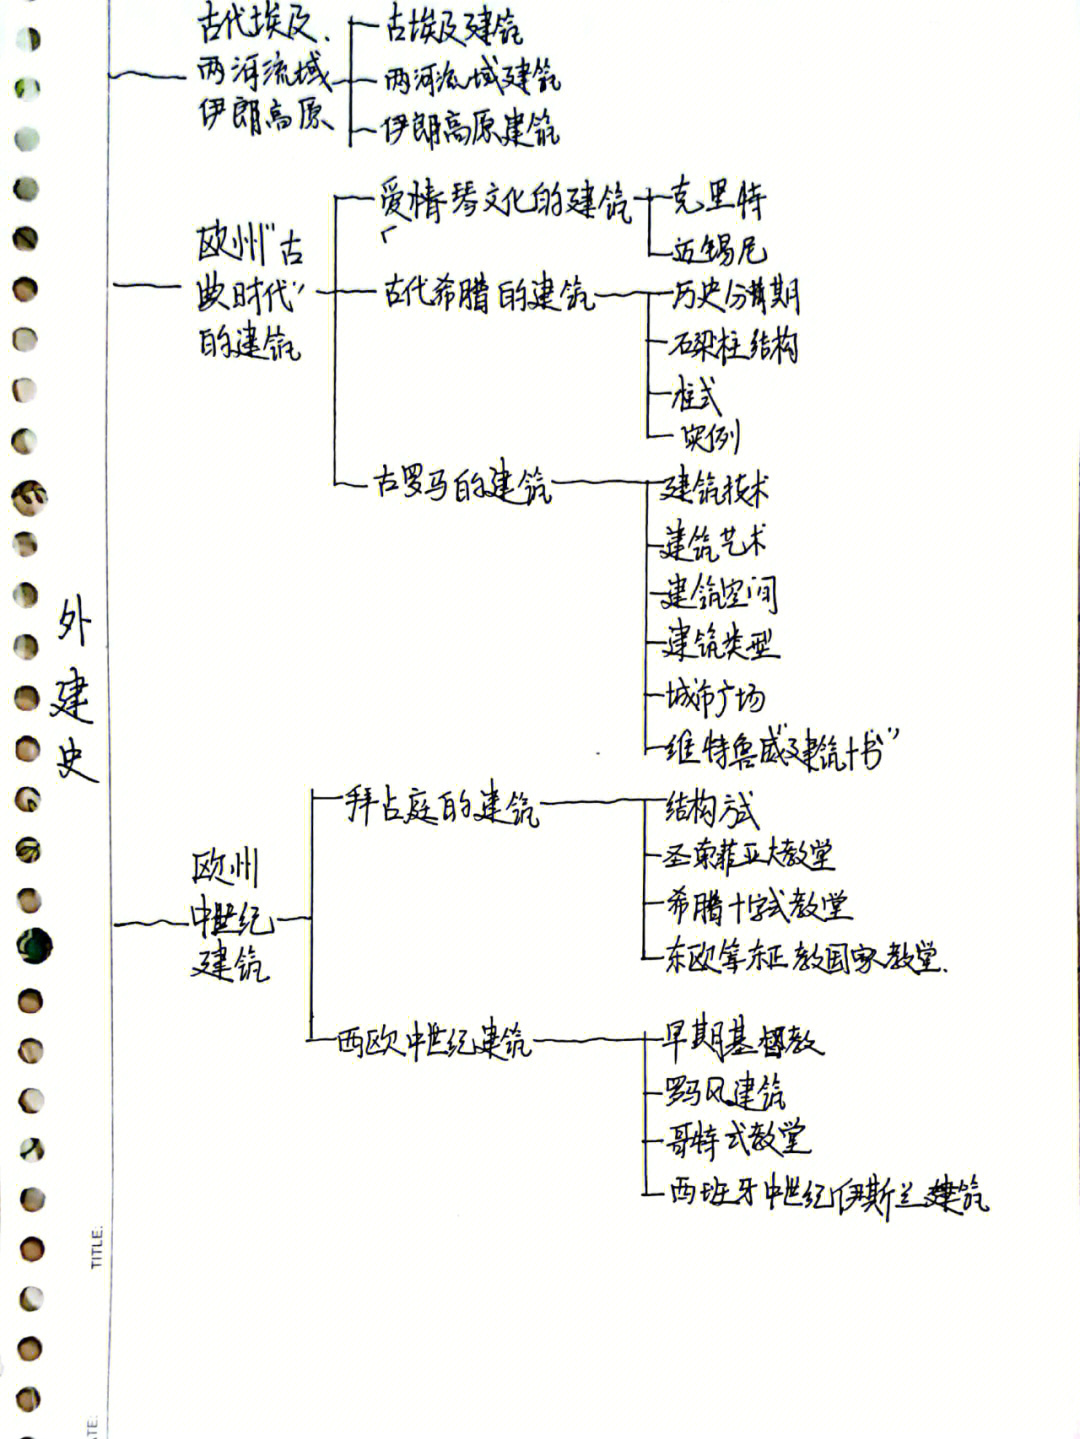 外建史
古代埃及.
两河流域
伊朗高原
古埃及建筑
两河流域建筑
伊朗高原建筑
欧州“古
典时代”
的建筑
爱情琴文化的建筑
克里特
迈锡尼
古代希腊的建筑
历史分期
石梁柱结构
柱式
实例
古罗马的建筑
建筑技术
建筑艺术
建筑空间
建筑类型
城市广场
维特鲁威“建筑十书”
欧州
中世纪
建筑
拜占庭的建筑
结构方式
圣索菲亚大教堂
希腊十字式教堂
东欧等东正教国家教堂.
西欧中世纪建筑
早期基督教
罗马风建筑
哥特式教堂
西班牙中世纪伊斯兰建筑
TITLE: